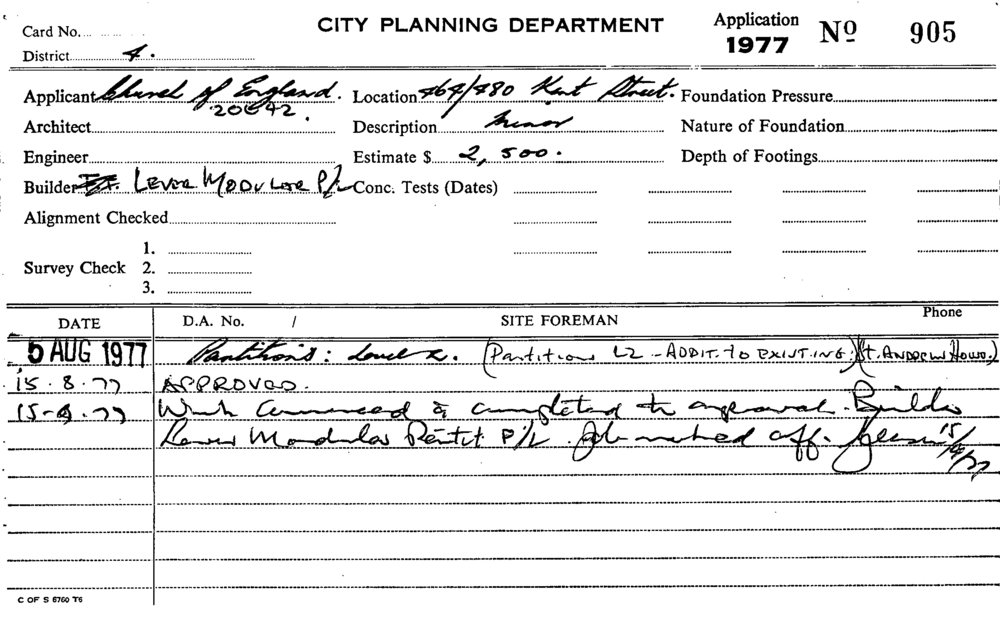 CITY PLANNING DEPARTMENT
Application 1977 Nº 905
Card No.
District 4.
Applicant Church of England. Location 464/480 Kent Street. Foundation Pressure
20642.
Architect Description Minor Nature of Foundation
Engineer Estimate $ 2,500. Depth of Footings
Builder Lever Modular P/L Conc. Tests (Dates)
Alignment Checked
1.
Survey Check 2.
3.
DATE D.A. No. / SITE FOREMAN Phone
5 AUG 1977 Partitions: Level 2. (Partitions L2 - ADDIT. TO EXISTING) (St. ANDREW House.)
15.8.77 APPROVED.
15-9.77 Work Commenced & completed to approval. Builder
Lever Modular P/L. Job marked off. 15/9/77
C OF S 6760 T6